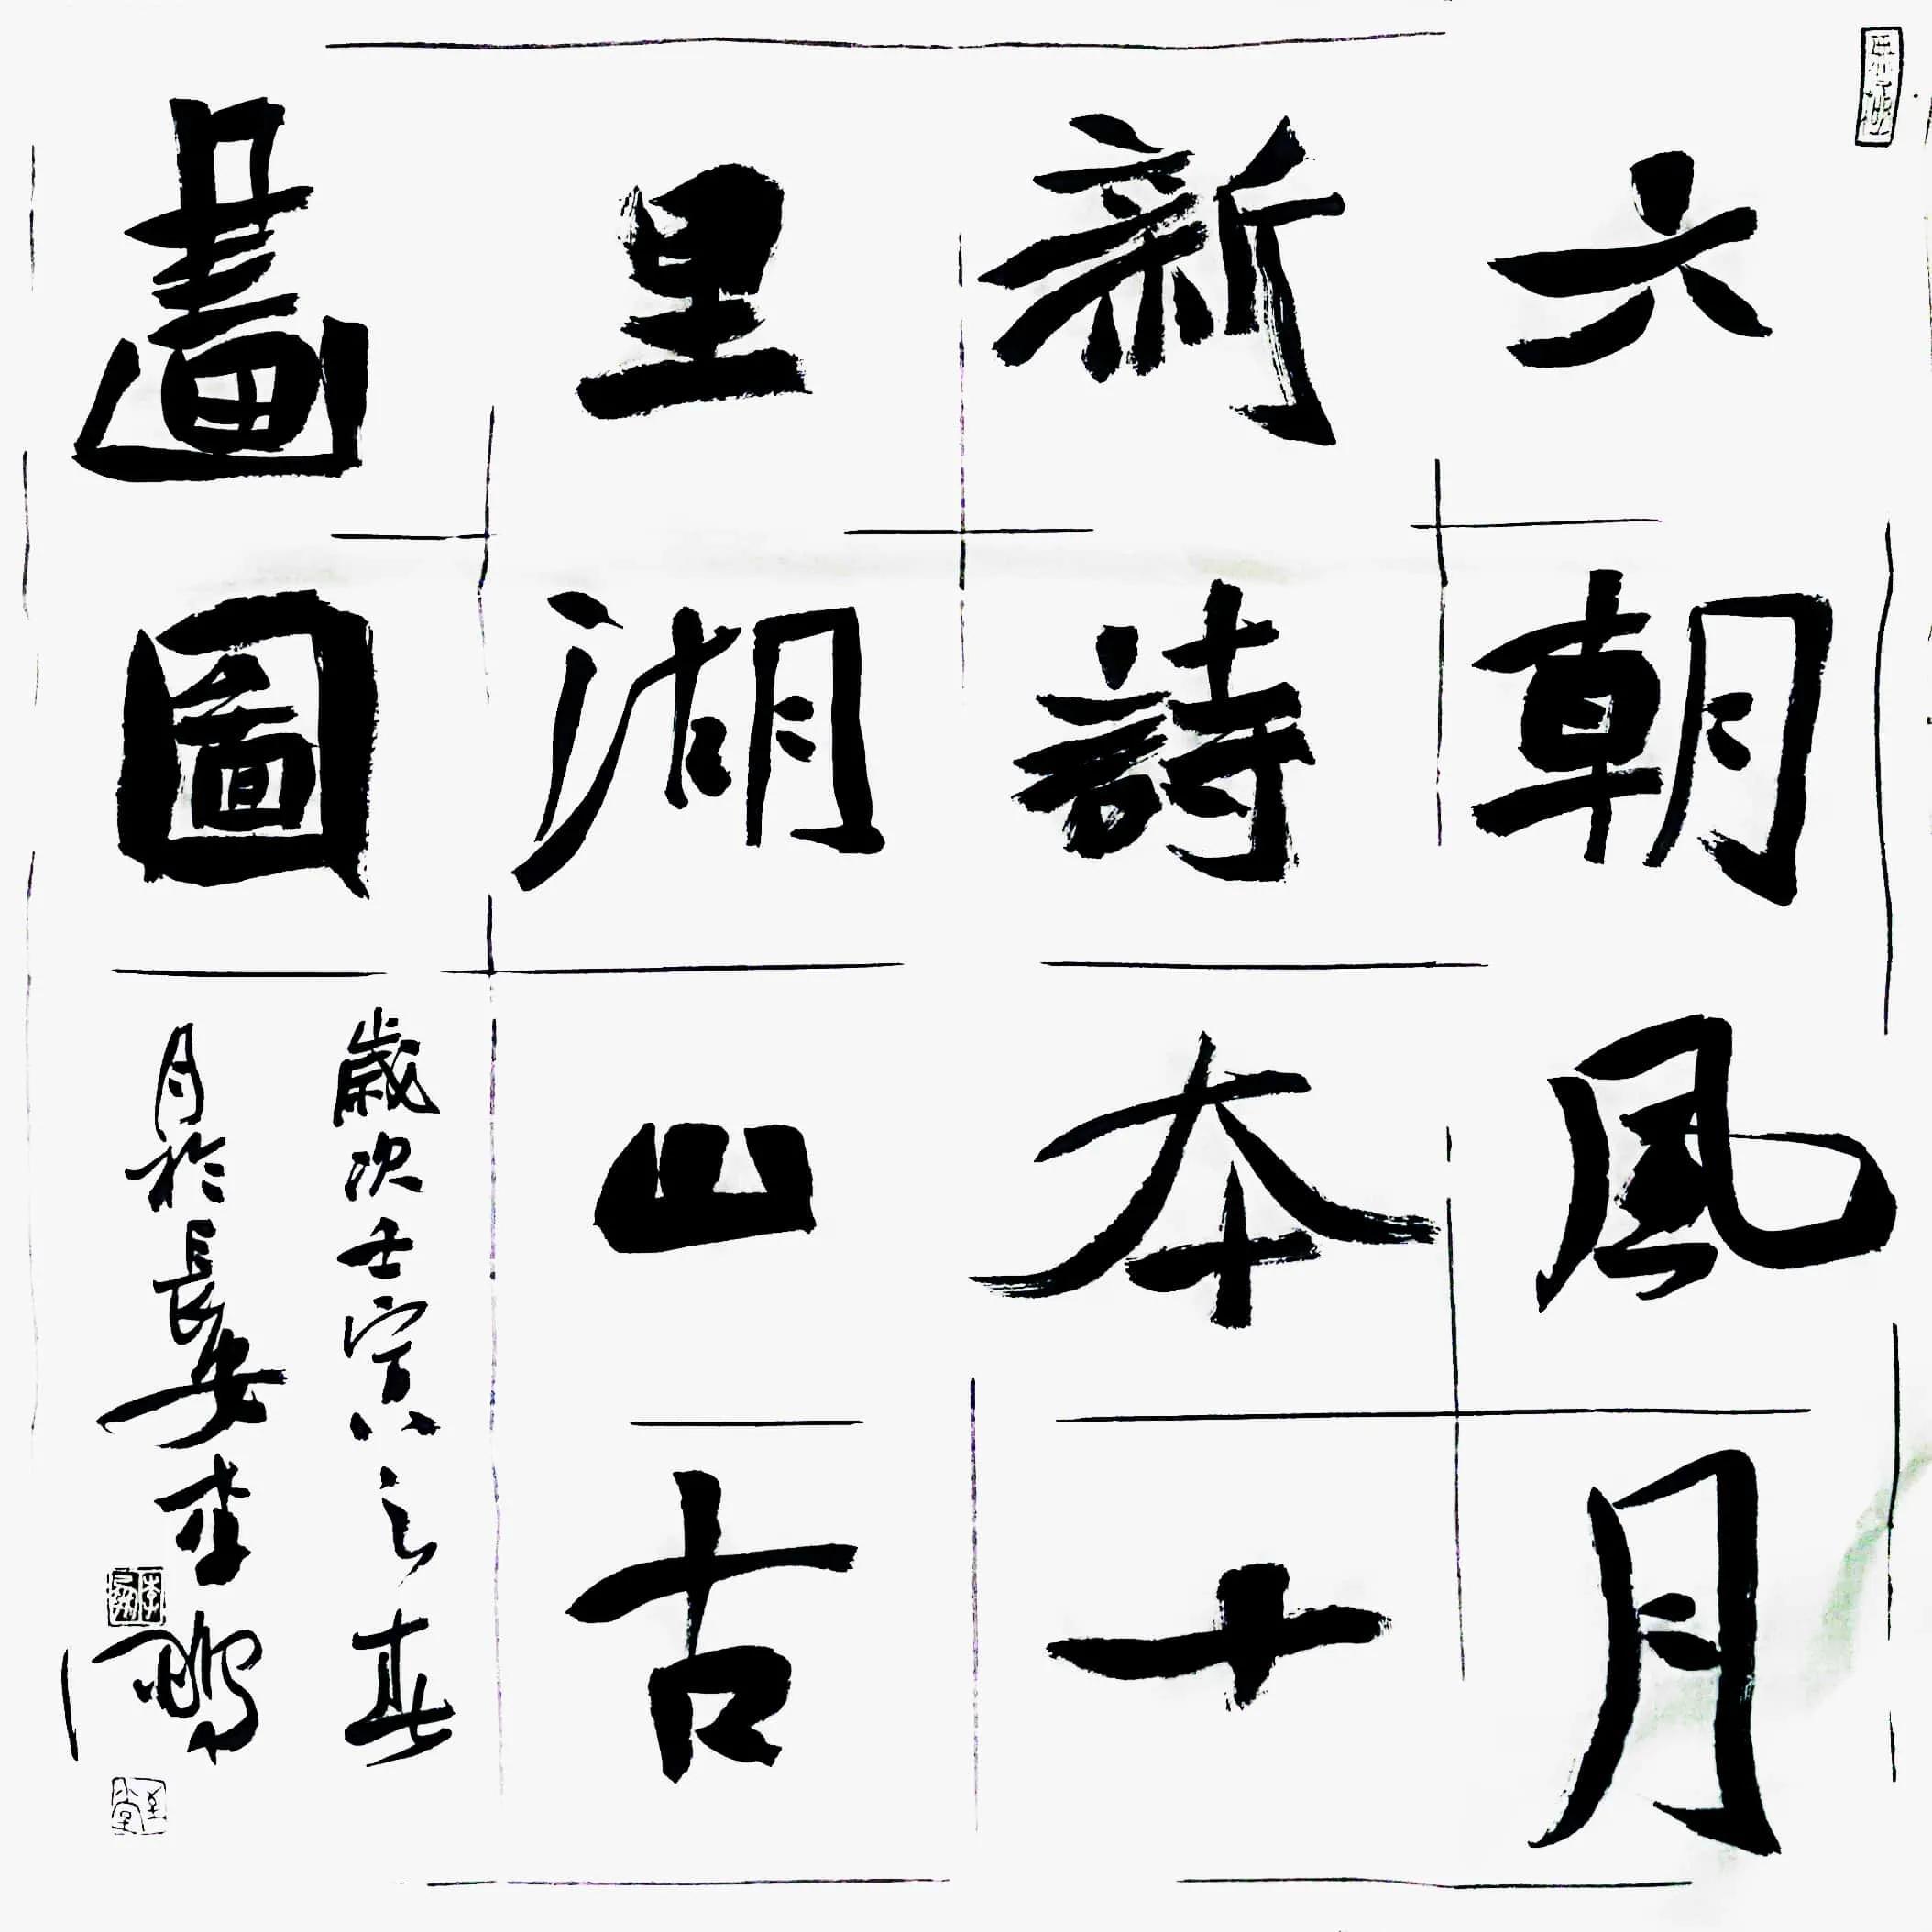 六朝風月
新詩本十
里湖山古
畫圖
歲次壬寅八之春
月於長安李鵬
李鵬